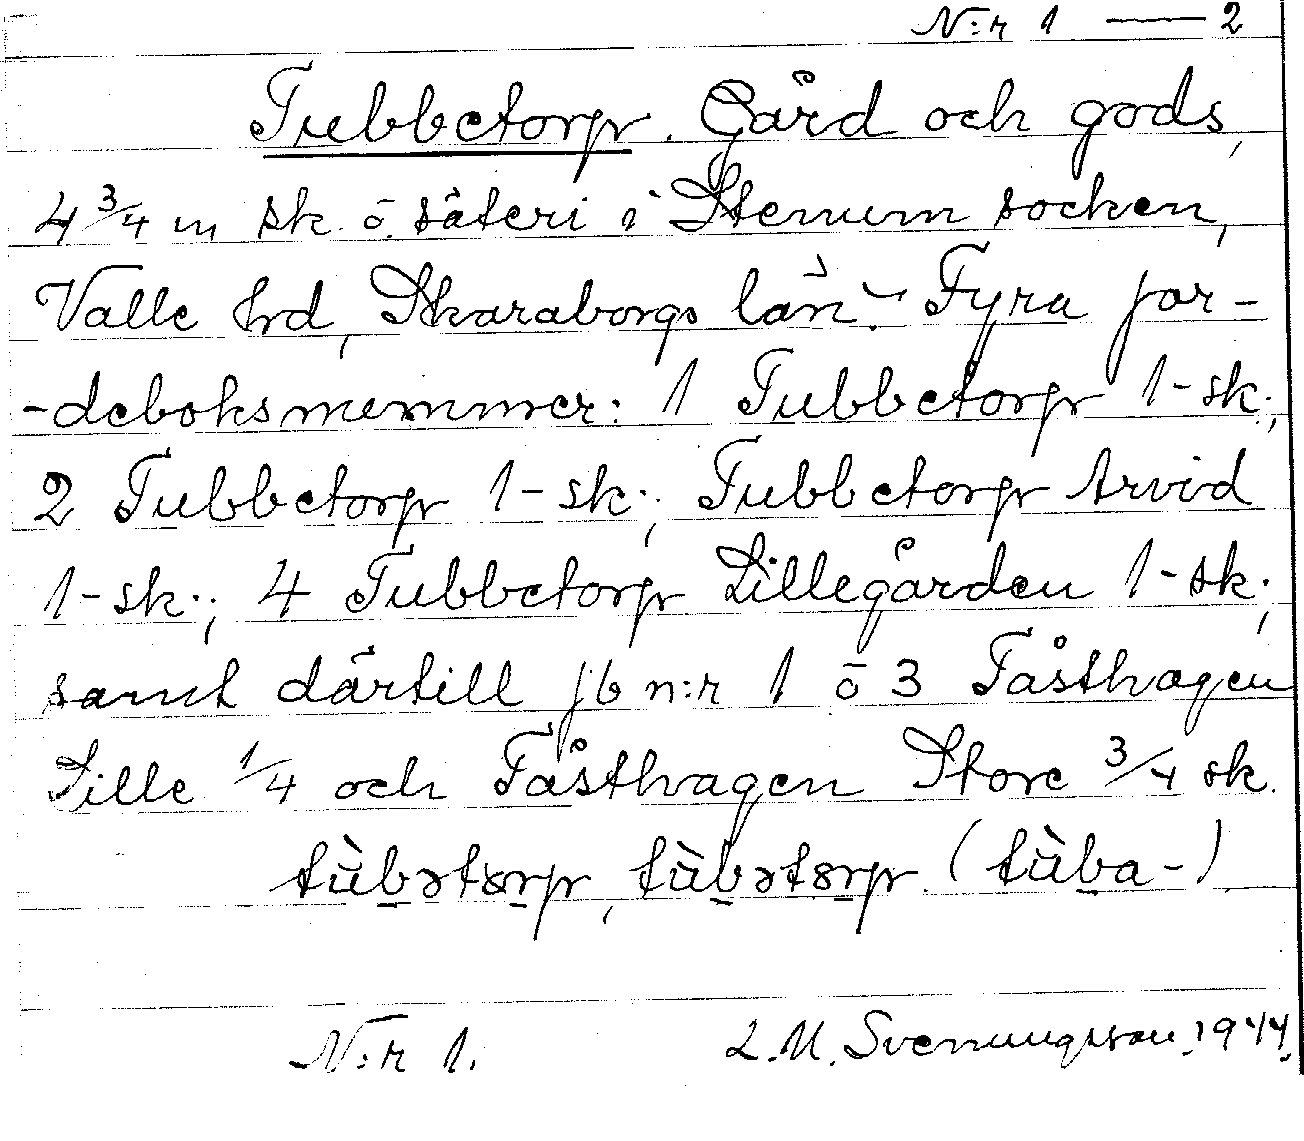 N:r 1 — 2
Tubbetorp. Gård och gods,
4 3/4 m sk. o. säteri i Stenum socken,
Valle hrd, Skaraborgs län. Fyra jor-
-deboksnummer: 1 Tubbetorp 1-sk.;
2 Tubbetorp 1-sk.; Tubbetorp Arvid
1-sk.; 4 Tubbetorp Lillegården 1-sk.;
samt därtill jb n:r 1 o 3 Fåsthagen
Lille 1/4 och Fåsthagen Store 3/4 sk.
tùbətorp, tùbətorp (tùba-)
N:r 1. L.M. Svenungsson 1944.